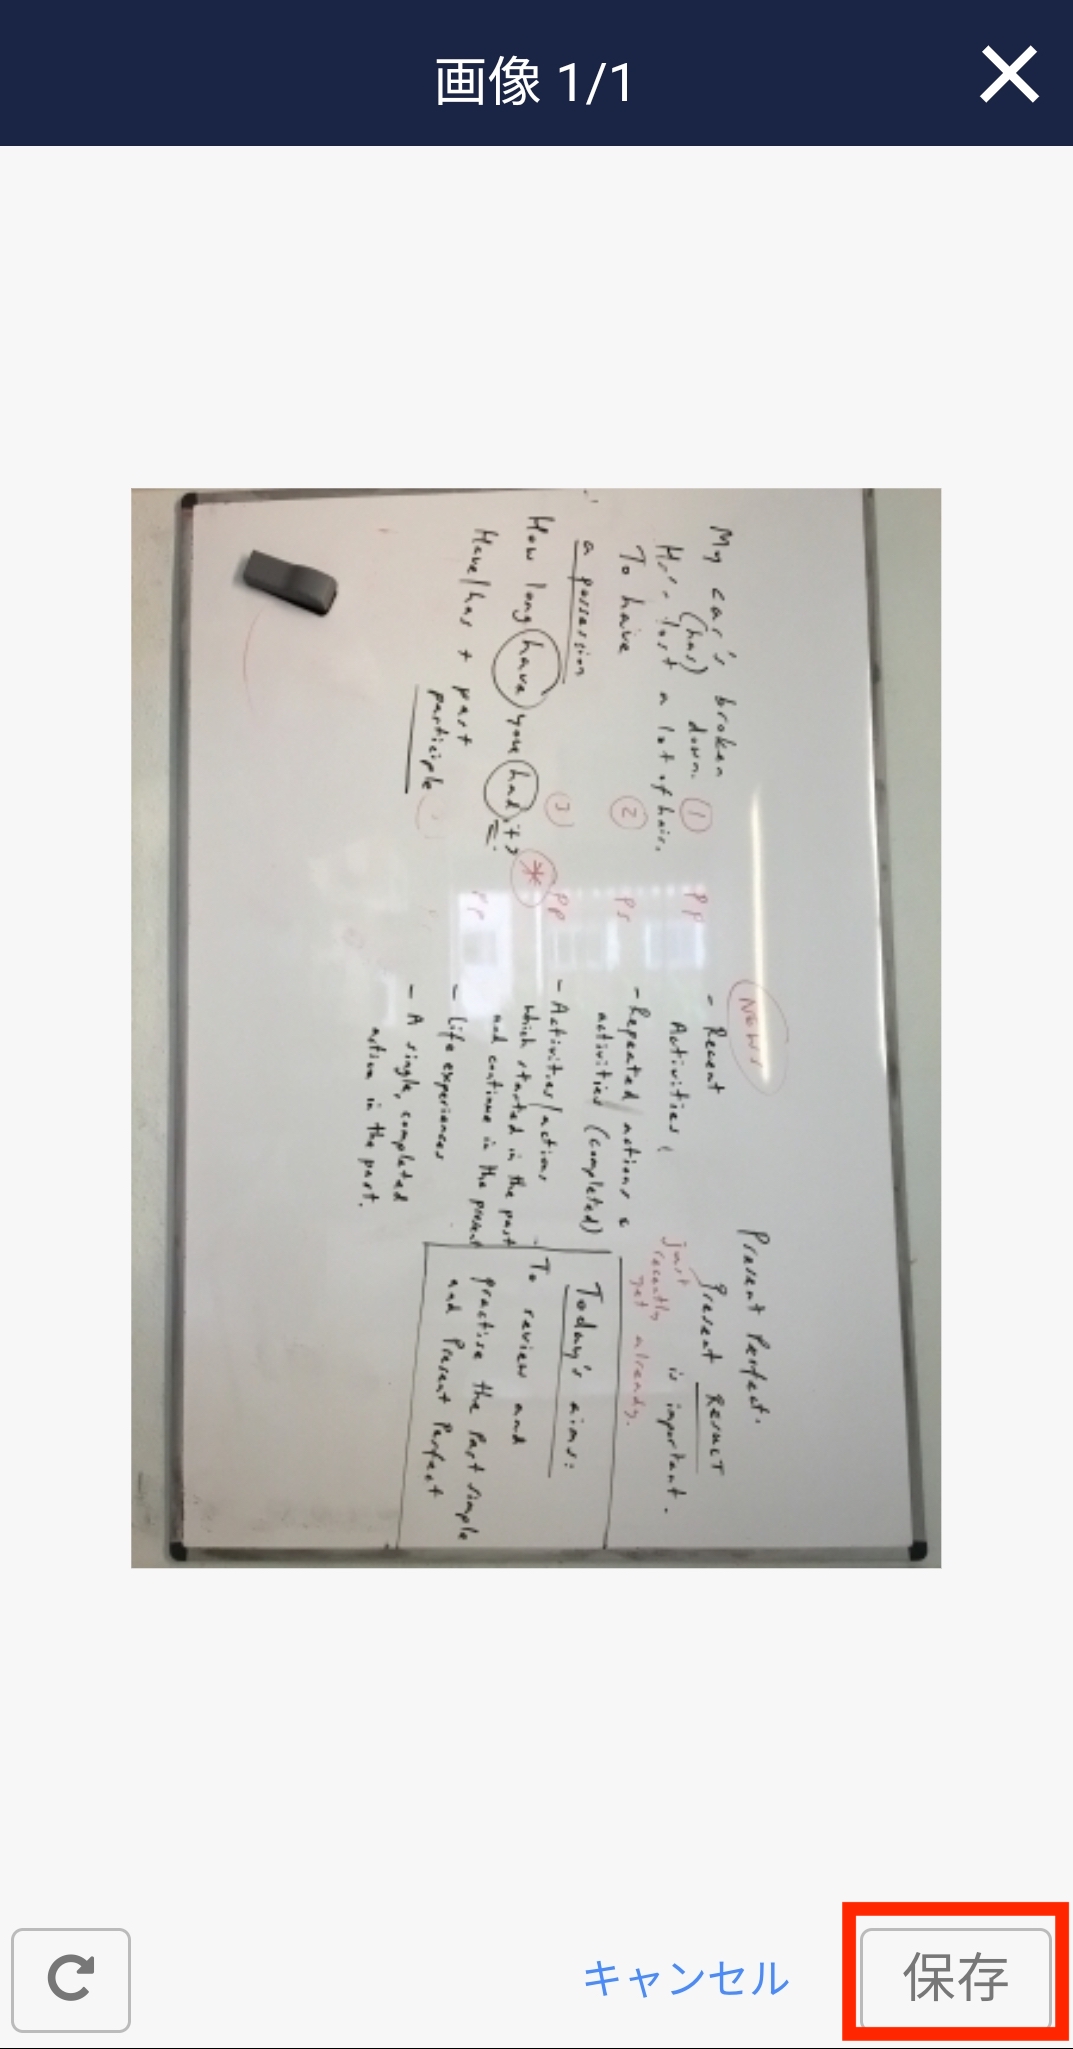 画像 1/1
Present Perfect.
NEWS
My car's broken
Present RESULT
- Recent
(has) down. 1 PP
Activities
is important.
just
lost a lot of hair.
recently
To have 2 PS
- Repeated actions &
yet already.
activities (completed)
a possession 3 PP
- Activities/actions
Today's aims:
How long have you had it?
*
which started in the past
- To review and
and continue in the present
Have/has + past
PP
- Life experiences
practise the Past simple
participle
- A single, completed
and Present Perfect
action in the past.
キャンセル
保存